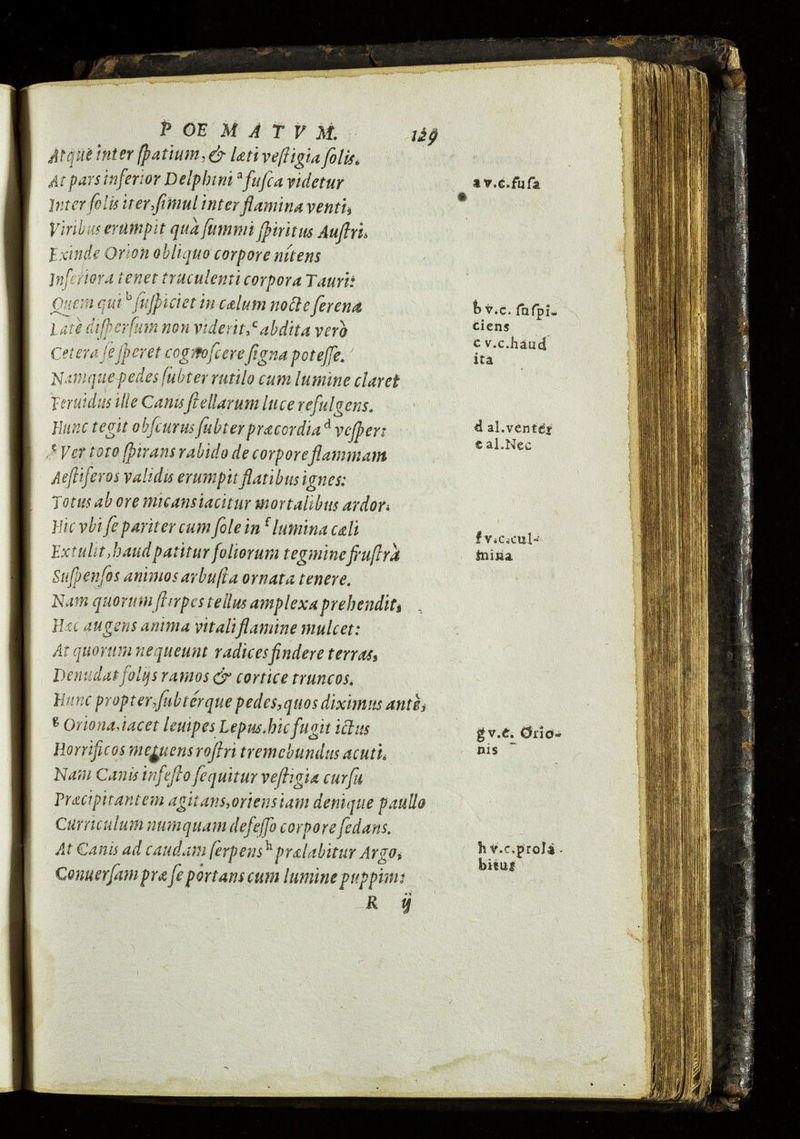 POEMATVM. 129
Atque inter spatium, & læti vestigia solis.
At pars inferior Delphini ᵃ fusca videtur
Inter solis iter, simul inter flamina venti,
Viribus erumpit quà summi spiritus Austri.
Exinde Orion obliquo corpore nitens
Inferiora tenet truculenti corpora Tauri:
Quem qui ᵇ suspiciet in cælum nocte serena
Latè dispersum non viderit, ᶜ abdita verò
Cetera se speret cognoscere signa potesse.
Namque pedes subter rutilo cum lumine claret
Feruidus ille Canis stellarum luce refulgens.
Hunc tegit obscurus subter præcordia ᵈ vesper:
ᵉ Ver toto spirans rabido de corpore flammam
Aestiferos validis erumpit flatibus ignes:
Totus ab ore micans iacitur mortalibus ardor.
Hic vbi se pariter cum sole in ᶠ lumina cæli
Extulit, haud patitur foliorum tegmine frustrà
Suspensos animos arbusta ornata tenere.
Nam quorum stirpes tellus amplexa prehendit,
Hæc augens anima vitali flamine mulcet:
At quorum nequeunt radices findere terras,
Denudat folijs ramos & cortice truncos.
Hunc propter, subtérque pedes, quos diximus antè,
ᵍ Oriona, iacet leuipes Lepus. hic fugit ictus
Horrificos metuens rostri tremebundus acuti.
Nam Canis infesto sequitur vestigia cursu
Præcipitantem agitans, oriens iam denique paullo
Curriculum numquam defesso corpore sedans.
At Canis ad caudam serpens ʰ prælabitur Argo,
Conuersam præ se portans cum lumine puppim:
R ij
a v.c. fusa
b v.c. suspi-
ciens
c v.c. haud
ita
d al. venter
e al. Nec
f v.c. cul-
mina
g v.c. Orio-
nis
h v.c. prola-
bitus